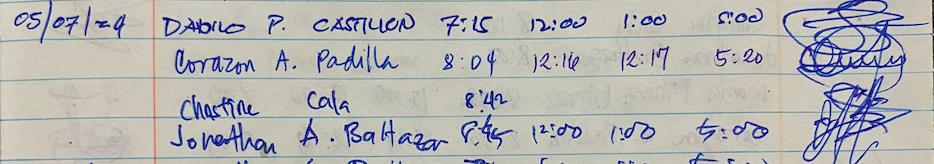 05/07/24 DADILO P. CASTILLON 7:15 12:00 1:00 5:00
Corazon A. Padilla 8:04 12:16 12:17 5:20
Chestine Cala 8:42
Jonathan A. Baltazar 8:45 12:00 1:00 5:00